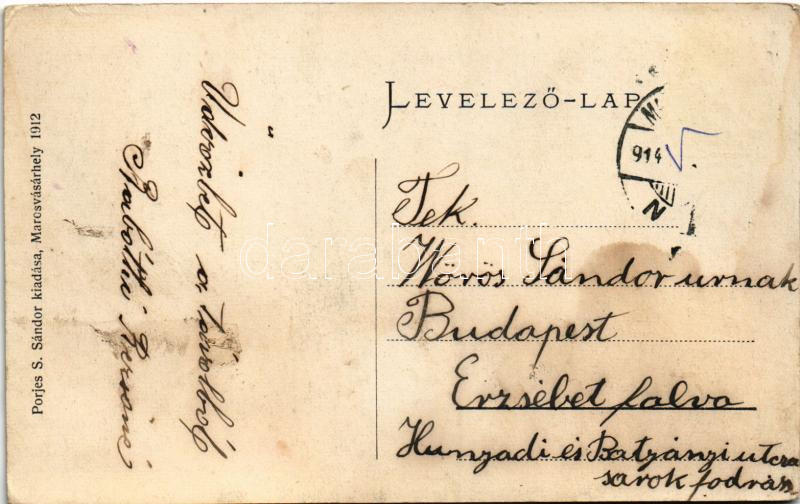 Porjes S. Sándor kiadása, Marosvásárhely 1912
Üdvözlet a távolból
LEVELEZŐ-LAP
914
Tek.
Vörös Sándor urnak
Budapest
Erzsébet falva
Hunyadi és Batyányi utcza
sarok fodrász
darabanth